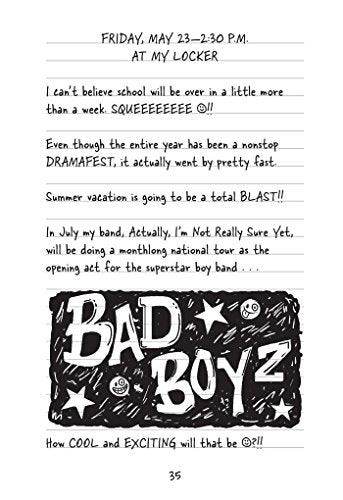 FRIDAY, MAY 23—2:30 P.M.
AT MY LOCKER
I can't believe school will be over in a little more
than a week. SQUEEEEEEEE ☺!!
Even though the entire year has been a nonstop
DRAMAFEST, it actually went by pretty fast.
Summer vacation is going to be a total BLAST!!
In July my band, Actually, I'm Not Really Sure Yet,
will be doing a monthlong national tour as the
opening act for the superstar boy band . . .
BAD
BOYZ
How COOL and EXCITING will that be ☺?!!
35